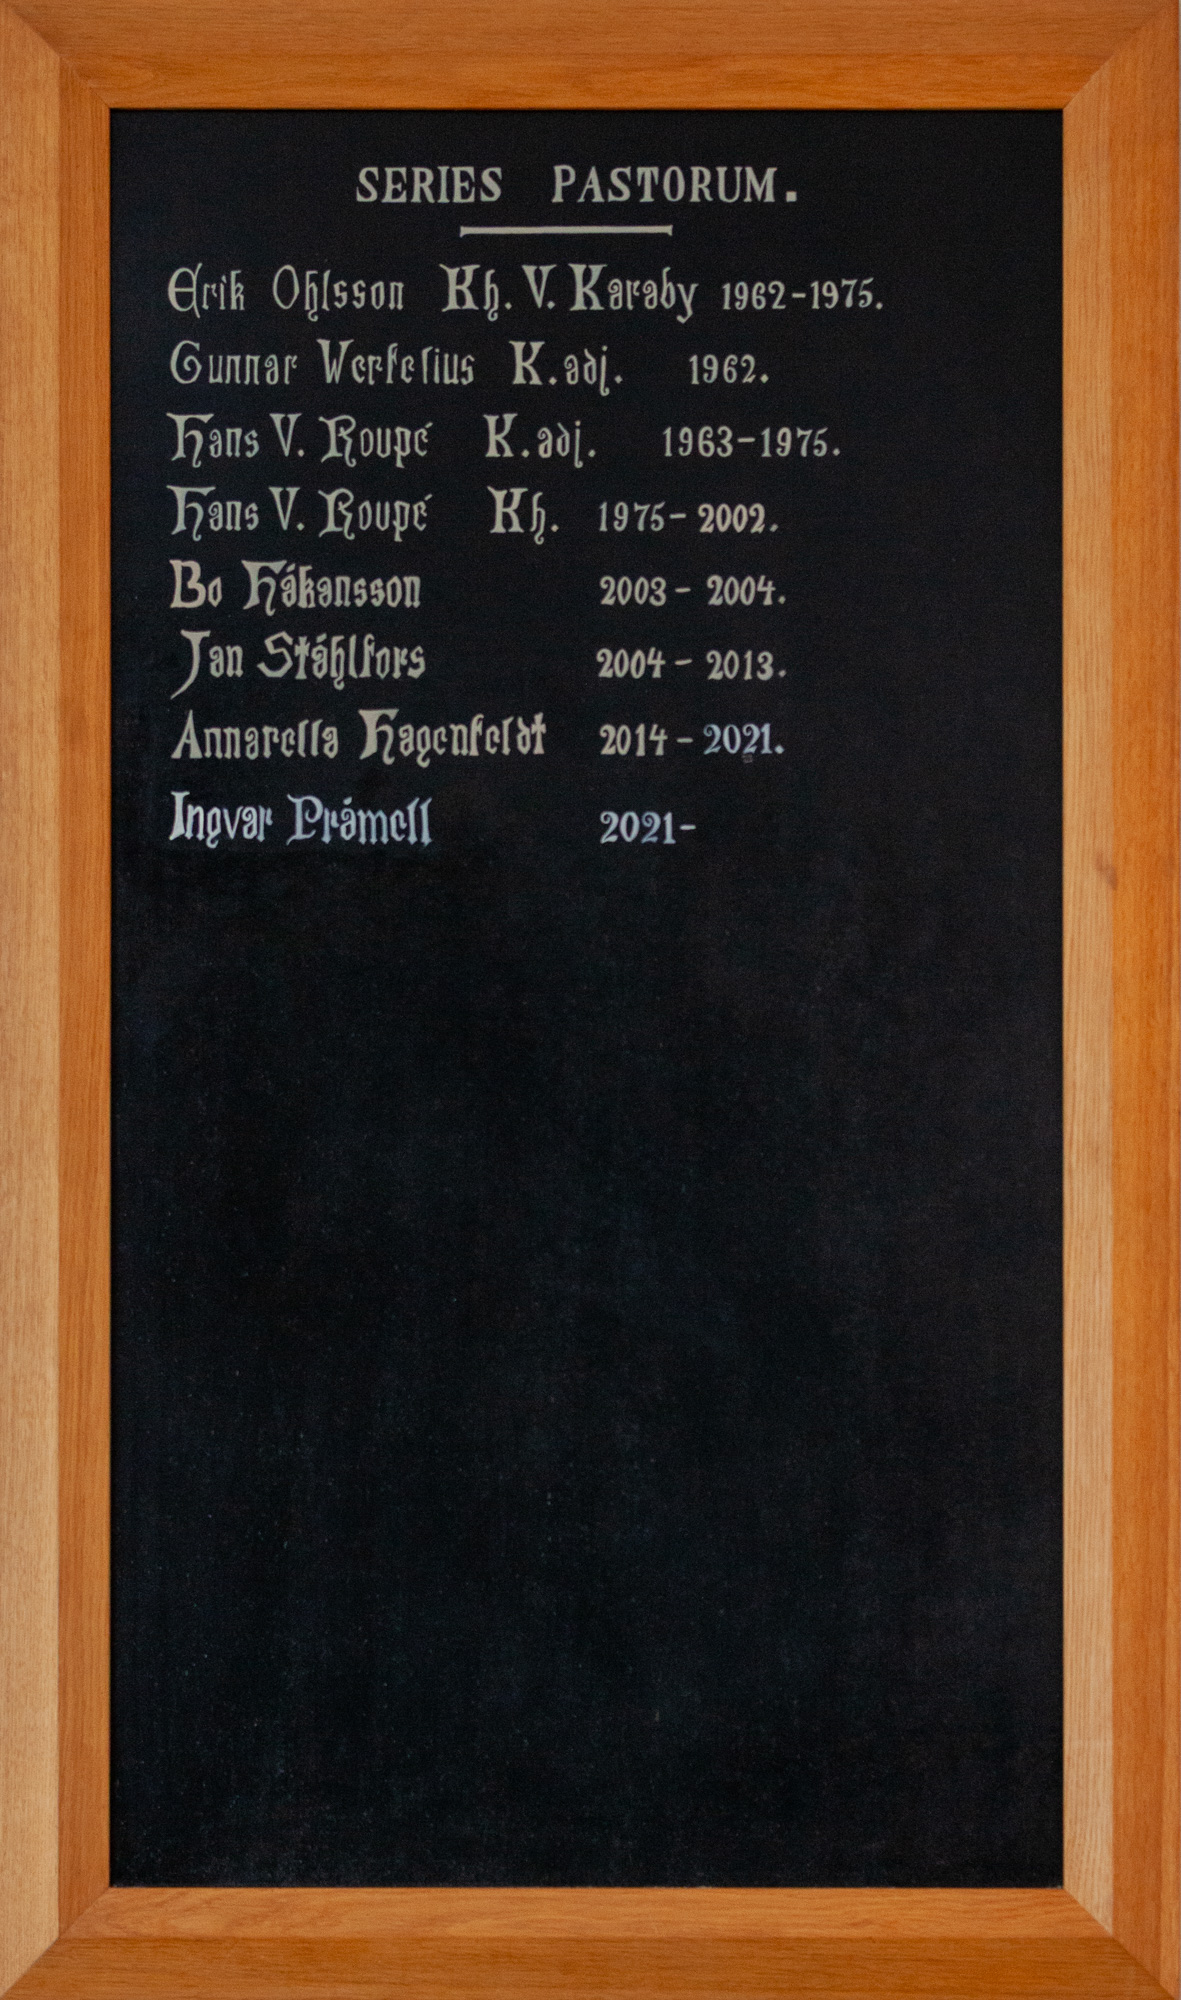 SERIES PASTORUM.
Erik Ohlsson Kh. V. Karaby 1962-1975.
Gunnar Werkelius K.adj. 1962.
Hans V. Roupé K.adj. 1963-1975.
Hans V. Roupé Kh. 1975-2002.
Bo Håkansson 2003-2004.
Jan Ståhlfors 2004-2013.
Annarella Hagenfeldt 2014-2021.
Ingvar Pråmell 2021-